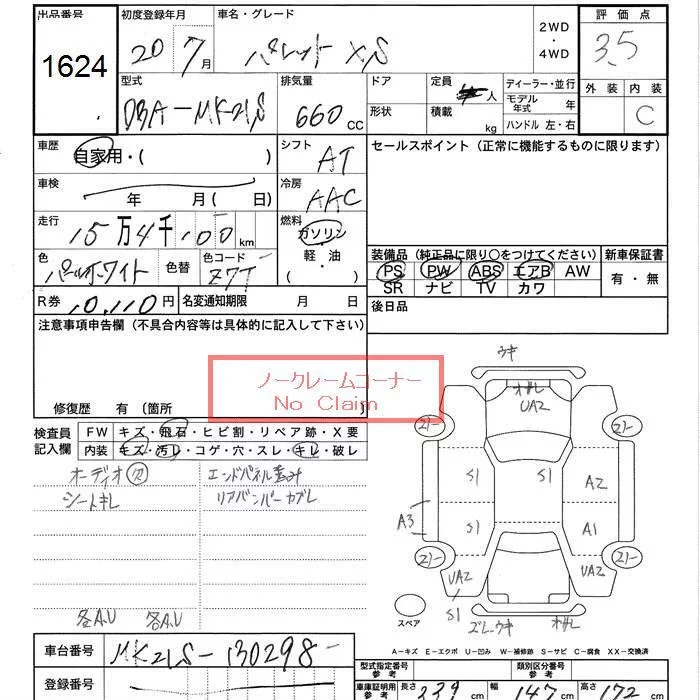 出品番号 初度登録年月 車名・グレード 2WD ・ 4WD 評価点
1624 20 7月 パレット XS 3.5
外装 内装
C
型式 排気量 ドア 定員 人 ディーラー・並行
DBA-MK21S 660 CC 形状 積載 kg モデル年式 年
ハンドル 左・右
車歴 自家用・( ) シフト AT セールスポイント (正常に機能するものに限ります)
車検 年 月( 日) 冷房 AAC
走行 15万4千100km 燃料 ガソリン・軽・油・( )
色 パールホワイト 色替 色コード Z7T
装備品 (純正品に限り〇をつけてください) 新車保証書
PS PW ABS エアB AW 有・無
SR ナビ TV カワ
R券 10,110円 名変通知期限 月 日 後日品
注意事項申告欄 (不具合内容等は具体的に記入して下さい)
ノークレームコーナー
No Claim
修復歴 有 〔箇所 〕
検査員記入欄 FW キズ・飛石・ヒビ割・リペア跡・X要
内装 キズ・汚レ・コゲ・穴・スレ・キレ・破レ
オーディオ欠 エンドパネル歪み
シートキレ リアバンパーカブレ
各A.U 各A.U
ウキ
オサレ
UA2
21- 21-
S1 S1 A2
A3 S1 A1
21- 21-
UA2 UA2
S1
スペア
ズレ・ウキ オサレ
A-キズ E-エクボ U-凹み W-補修跡 S-サビ C-腐食 XX-交換済
車台番号 MK21S-130298-
型式指定番号 参考 類別区分番号 参考
登録番号
車庫証明用 参考 長さ 339 cm 幅 147 cm 高さ 172